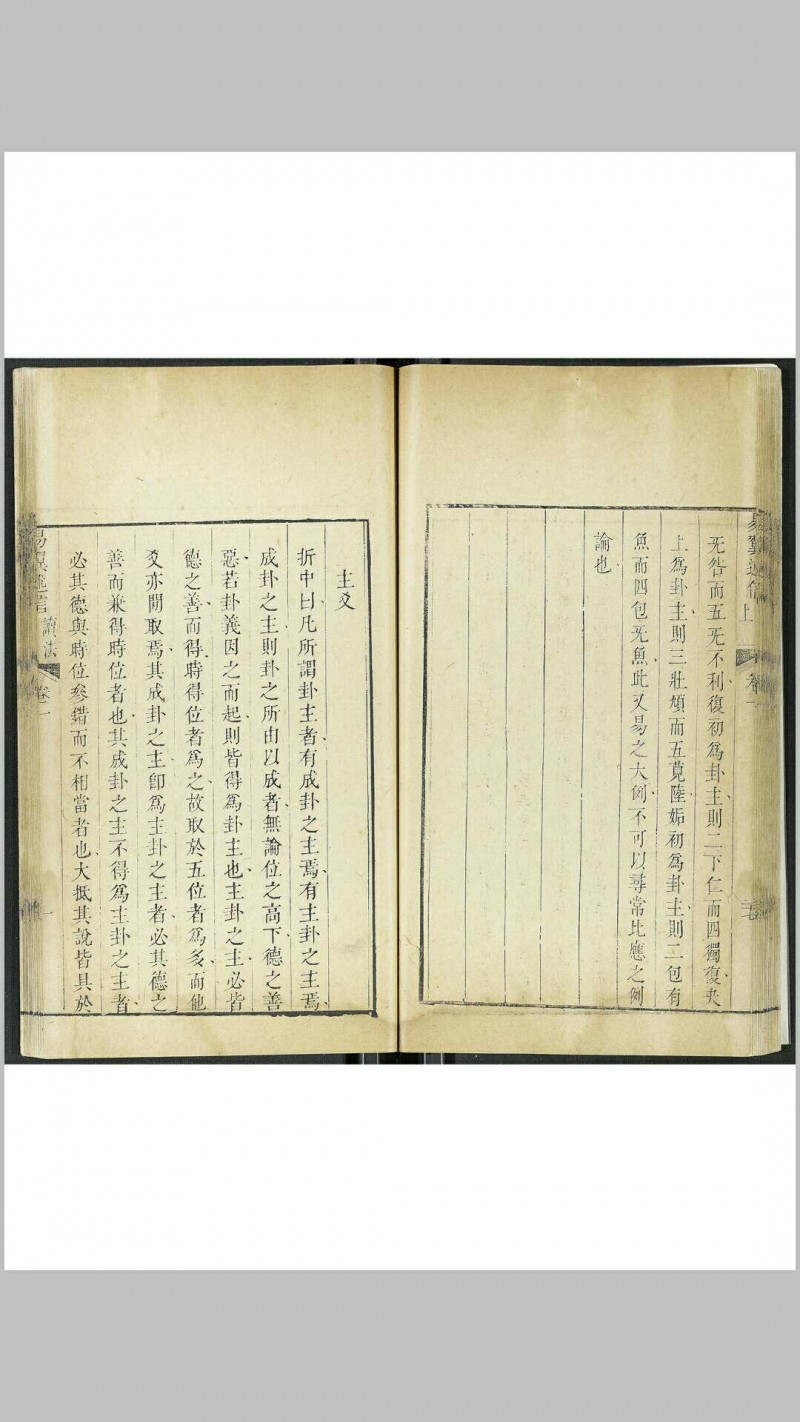 无咎而五无不利復初為卦主則二下仁而四獨復夬
上為卦主則三壯頄而五莧陸姤初為卦主則二包有
魚而四包无魚此又易之大例不可以尋常比應之例
論也
主爻
折中曰凡所謂卦主者有成卦之主焉有主卦之主焉
成卦之主則卦之所由以成者無論位之高下德之善
惡若卦義因之而起則皆得為卦主也主卦之主必皆
德之善而得時得位者為之故取於五位者為多而他
爻亦閒取焉其成卦之主卽為主卦之主者必其德之
善而兼得時位者也其成卦之主不得為主卦之主者
必其德與時位參錯而不相當者也大抵其說皆具於
讀法
卷一
一